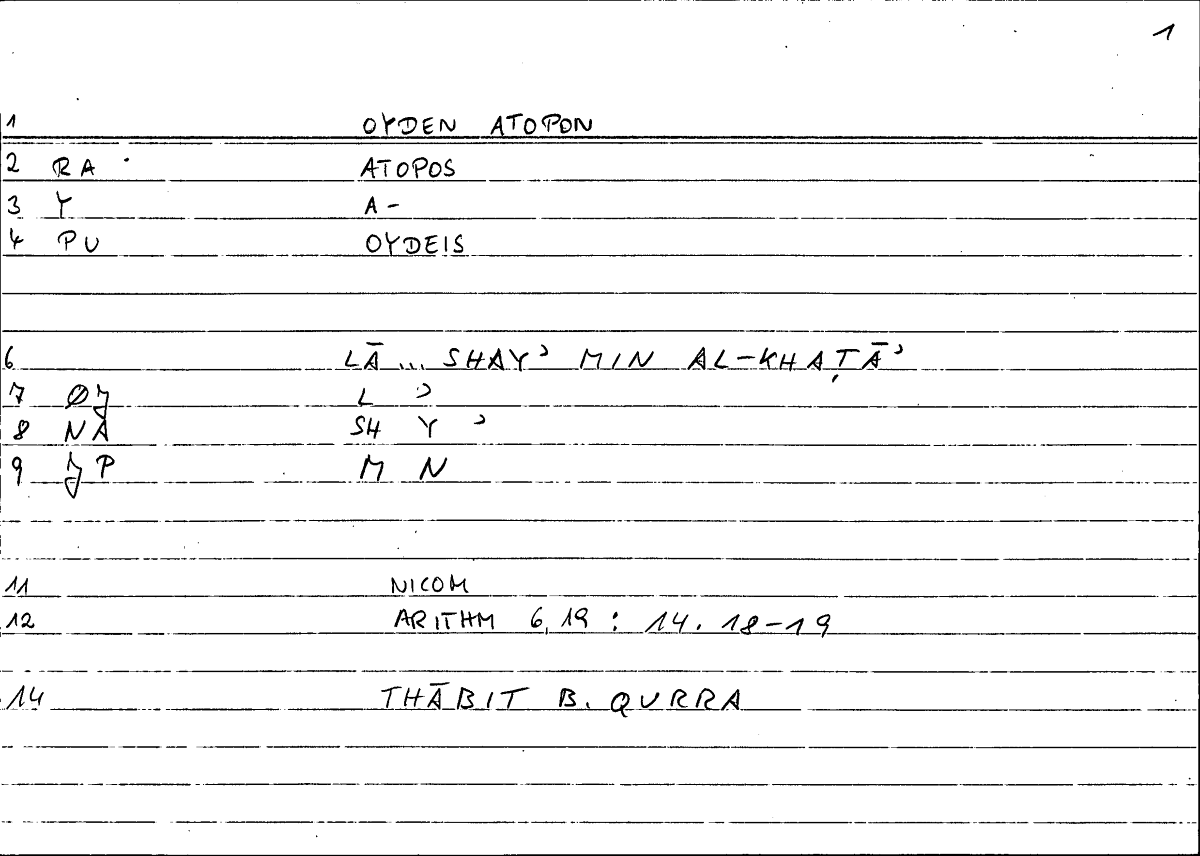 1
1 OYDEN ATOPON
2 RA ATOPOS
3 Y A-
4 PU OYDEIS
6 LĀ... SHAYʾ MIN AL-KHAṬĀʾ
7 ØJ L ʾ
8 NA SH Y ʾ
9 JP M N
11 NICOM
12 ARITHM 6,19 : 14.18-19
14 THĀBIT B. QURRA